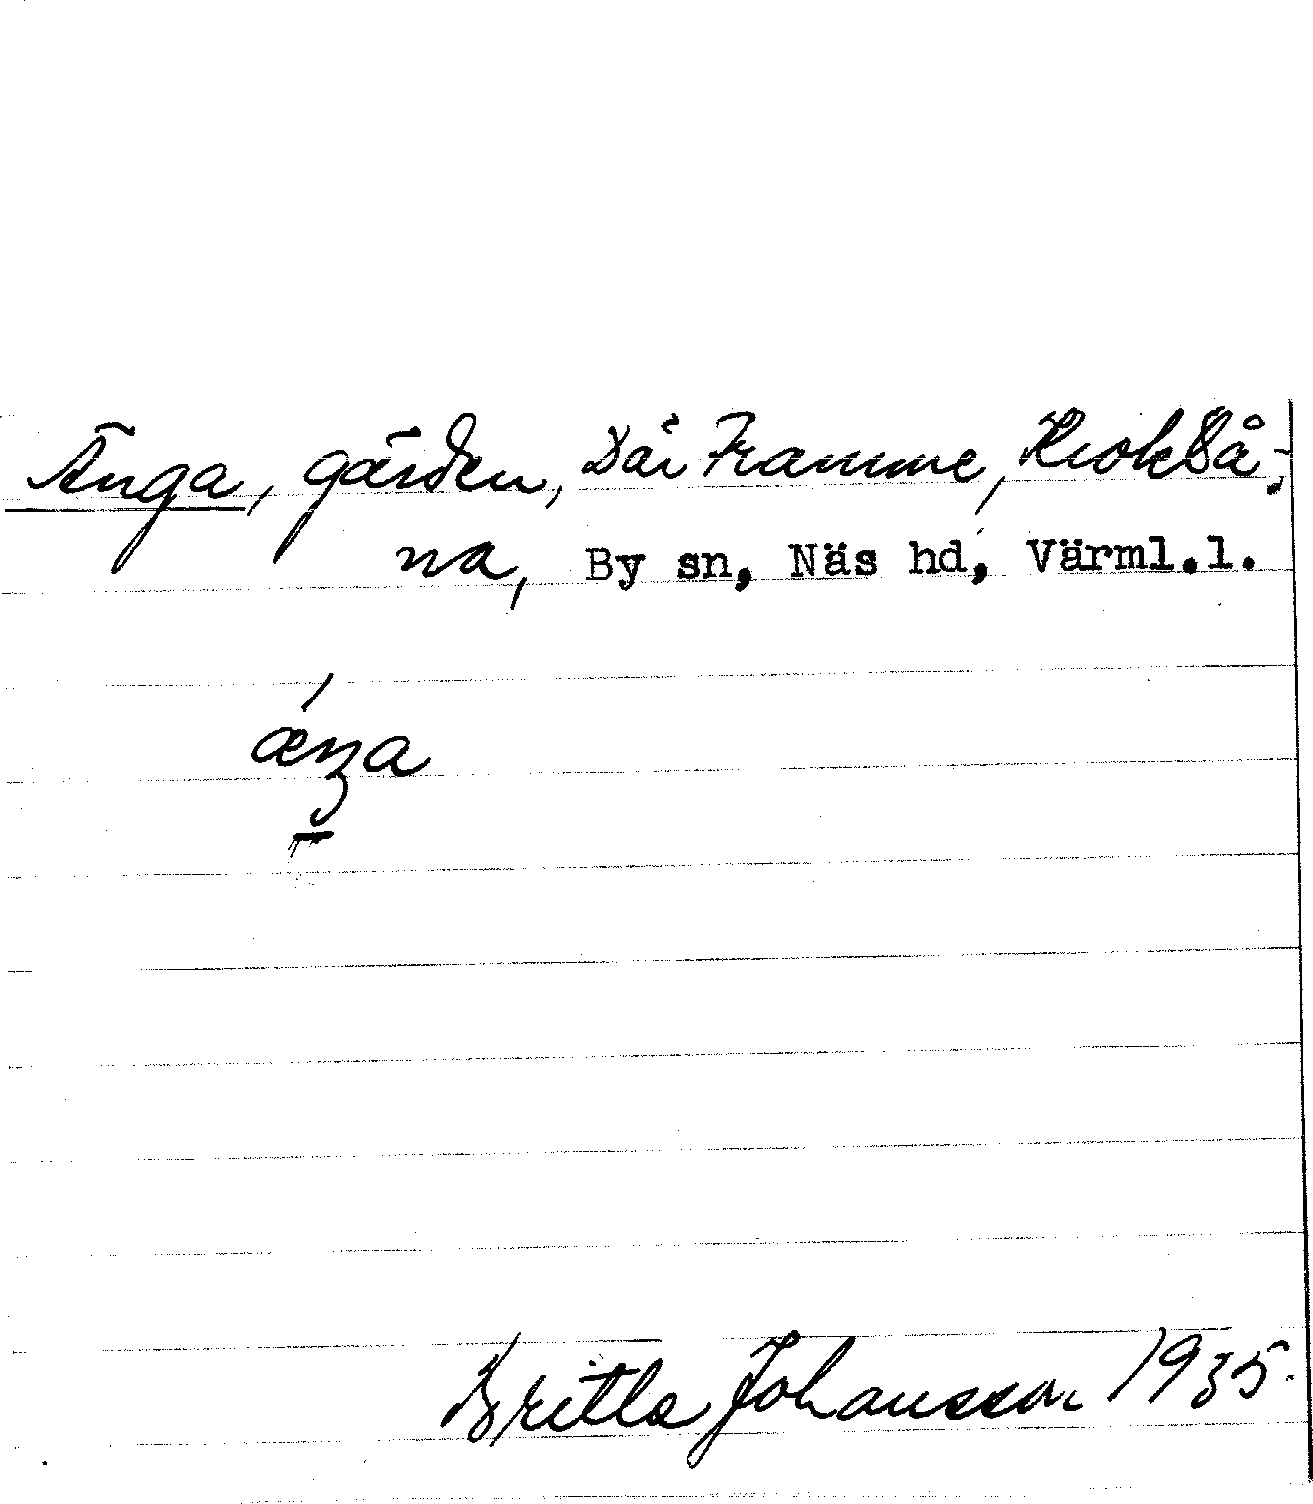 Änga, gärden, Där Framme, Krokså-
na, By sn, Näs hd, Värml.l.
æŋa
Britta Johansson 1935.